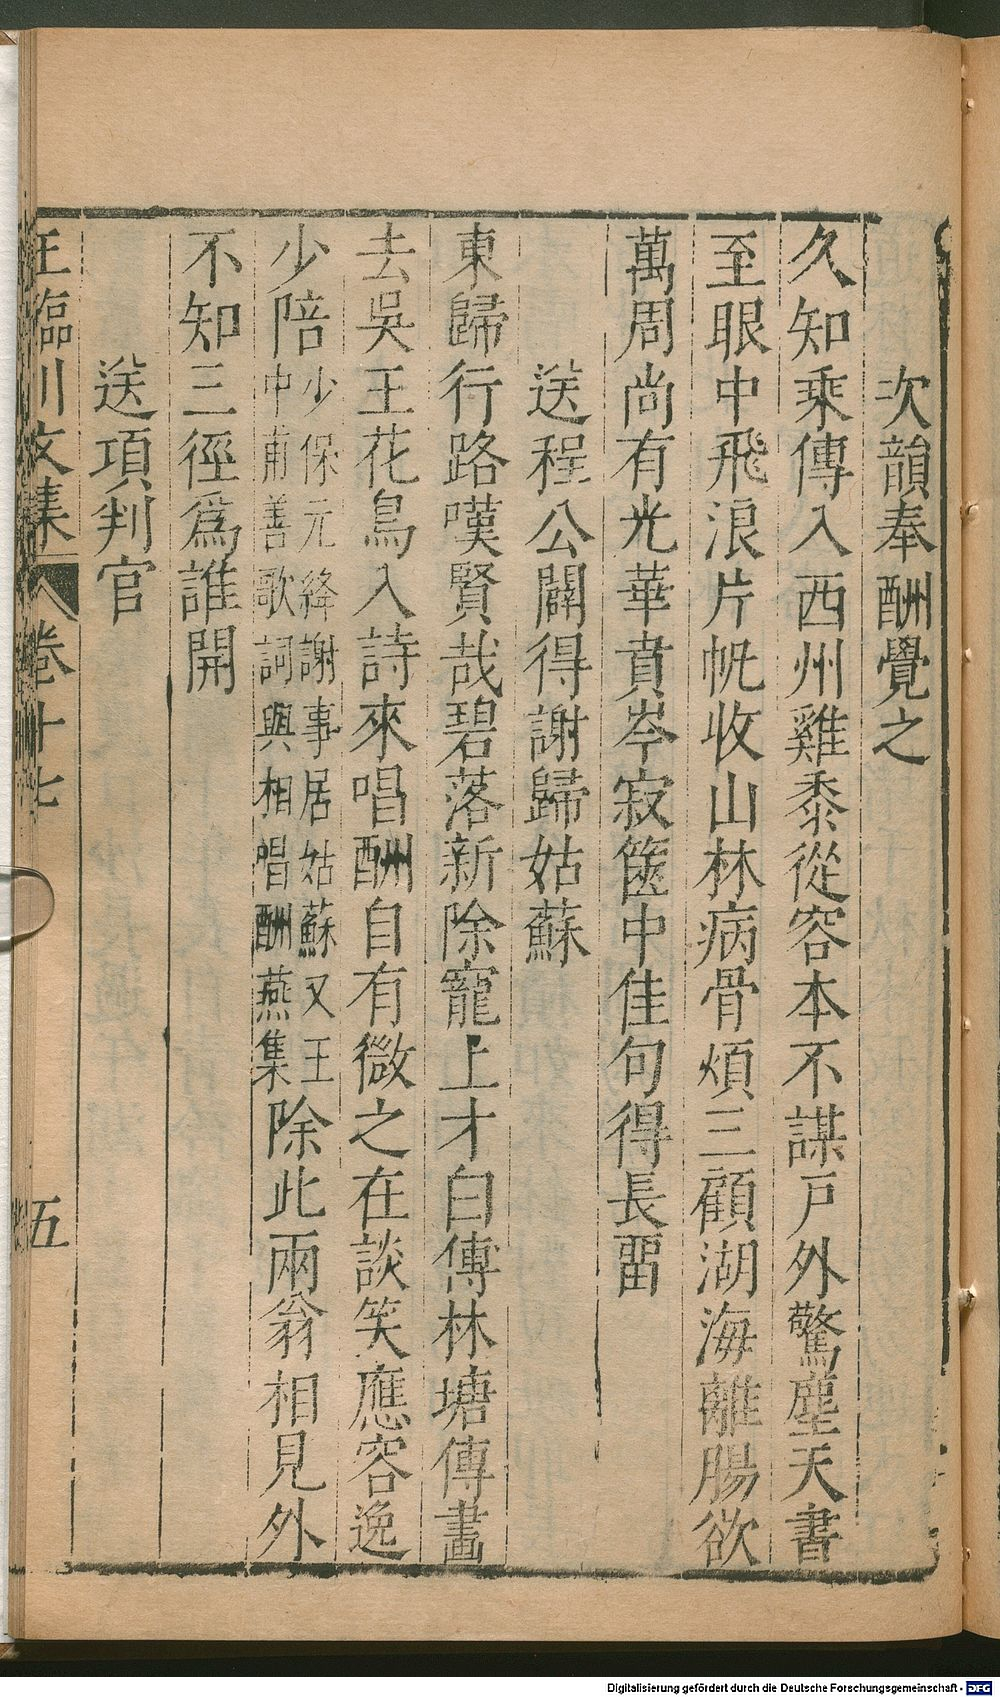 次韻奉酬覺之
久知乘傳入西州雞黍從容本不謀戸外驚塵天書
至眼中飛浪片帆收山林病骨煩三顧湖海離腸欲
萬周尚有光華賁岑寂篋中佳句得長畱
送程公闢得謝歸姑蘇
東歸行路嘆賢哉碧落新除寵上才白傅林塘傳畫
去吳王花鳥入詩來唱酬自有微之在談笑應容逸
少陪少保元絳謝事居姑蘇又王中甫善歌詞與相唱酬燕集除此兩翁相見外
不知三徑爲誰開
送項判官
王臨川文集 卷十七 五
Digitalisierung gefördert durch die Deutsche Forschungsgemeinschaft - DFG